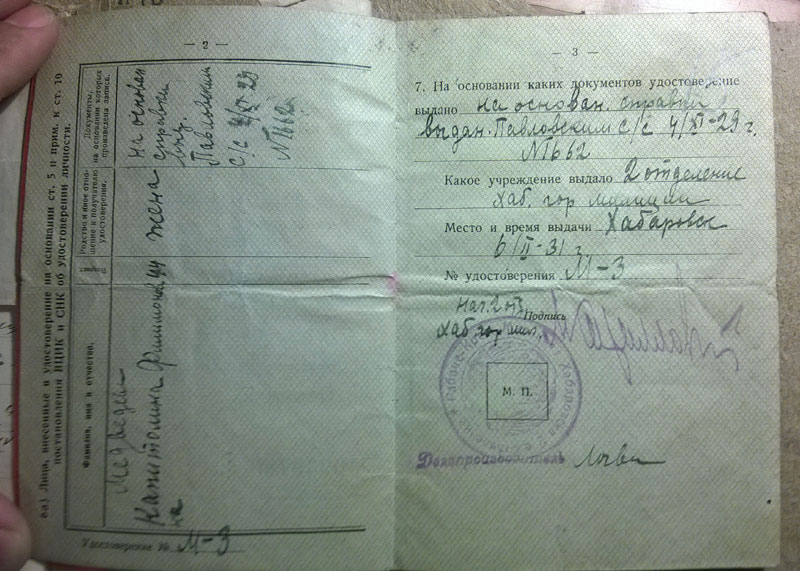 — 2 —
6а) Лица, внесенные в удостоверение на основании ст. 5 и прим. к ст. 10
постановления ВЦИК и СНК об удостоверении личности.
Фамилия, имя и отчество.
Возраст
Родство и иное отно-
шение к получателю
удостоверения.
Документы,
на основании которых
произведена запись.
Медведева
Капитолина
44
жена
на основан
справки
выд.
Павловским
с/с 4/XI-29
№1662
Удостоверение № М-3
— 3 —
7. На основании каких документов удостоверение
выдано на основан. справки
выдан. Павловским с/с 4/XI-29 г.
№1662
Какое учреждение выдало 2 отделение
Хаб. гор милиции
Место и время выдачи Хабаровск
6/II-31 г
№ удостоверения М-3
Нач. 2 отд.
Подпись
Хаб. гор мил.
М. П.
Делопроизводитель